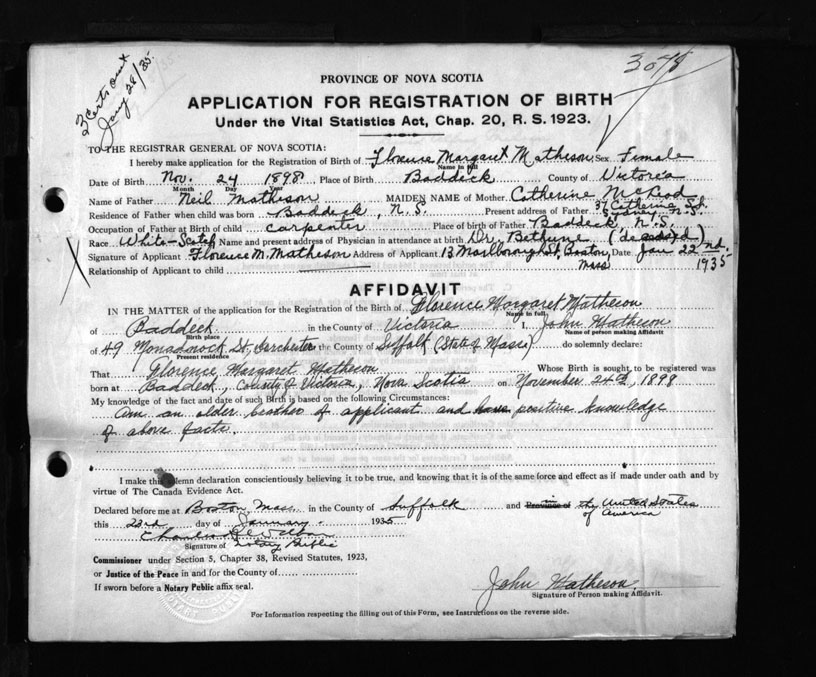 3 Certs out
Jany 28/35
PROVINCE OF NOVA SCOTIA
APPLICATION FOR REGISTRATION OF BIRTH
Under the Vital Statistics Act, Chap. 20, R. S. 1923.
TO THE REGISTRAR GENERAL OF NOVA SCOTIA:
I hereby make application for the Registration of Birth of Florence Margaret Matheson Sex Female
Name in full
Date of Birth Nov. 24 1898 Place of Birth Baddeck County of Victoria
Month Day Year
Name of Father Neil Matheson MAIDEN NAME of Mother Catherine McLeod
Residence of Father when child was born Baddeck, N.S. Present address of Father 37 Catherine St. Sydney N.S.
Occupation of Father at Birth of child carpenter Place of birth of Father Baddeck N.S.
Race White-Scotch Name and present address of Physician in attendance at birth Dr. Bethune (deceased)
Signature of Applicant Florence M. Matheson Address of Applicant 13 Marlborough St. Boston, Mass Date Jan 22nd. 1935
Relationship of Applicant to child
AFFIDAVIT
IN THE MATTER of the application for the Registration of the Birth of Florence Margaret Matheson
Name in full
of Baddeck in the County of Victoria I, John Matheson
Birth place Name of person making Affidavit
of 49 Monadnock St, Dorchester the County of Suffolk (State of Mass) do solemnly declare:
Present residence
That Florence Margaret Matheson Whose Birth is sought to be registered was
born at Baddeck, County of Victoria, Nova Scotia on November 24th, 1898
My knowledge of the fact and date of such Birth is based on the following Circumstances:
Am an older brother of applicant and have positive knowledge
of above facts.
I make this solemn declaration conscientiously believing it to be true, and knowing that it is of the same force and effect as if made under oath and by
virtue of The Canada Evidence Act.
Declared before me at Boston, Mass in the County of Suffolk and Province of the United States of America
this 23rd day of January 1935
Charles
Signature of Notary Public
Commissioner under Section 3, Chapter 38, Revised Statutes, 1923,
or Justice of the Peace in and for the County of
If sworn before a Notary Public affix seal.
John Matheson.
Signature of Person making Affidavit.
For Information respecting the filling out of this Form, see Instructions on the reverse side.